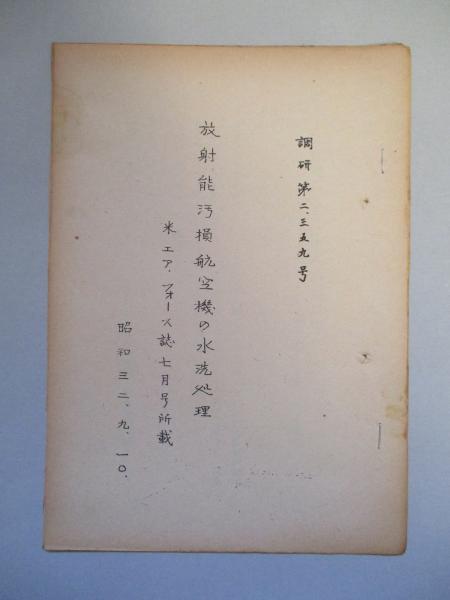 調研第二、三五九号
放射能汚損航空機の水洗処理
米エア、フォース誌七月号所載
昭和三二、九、一〇、